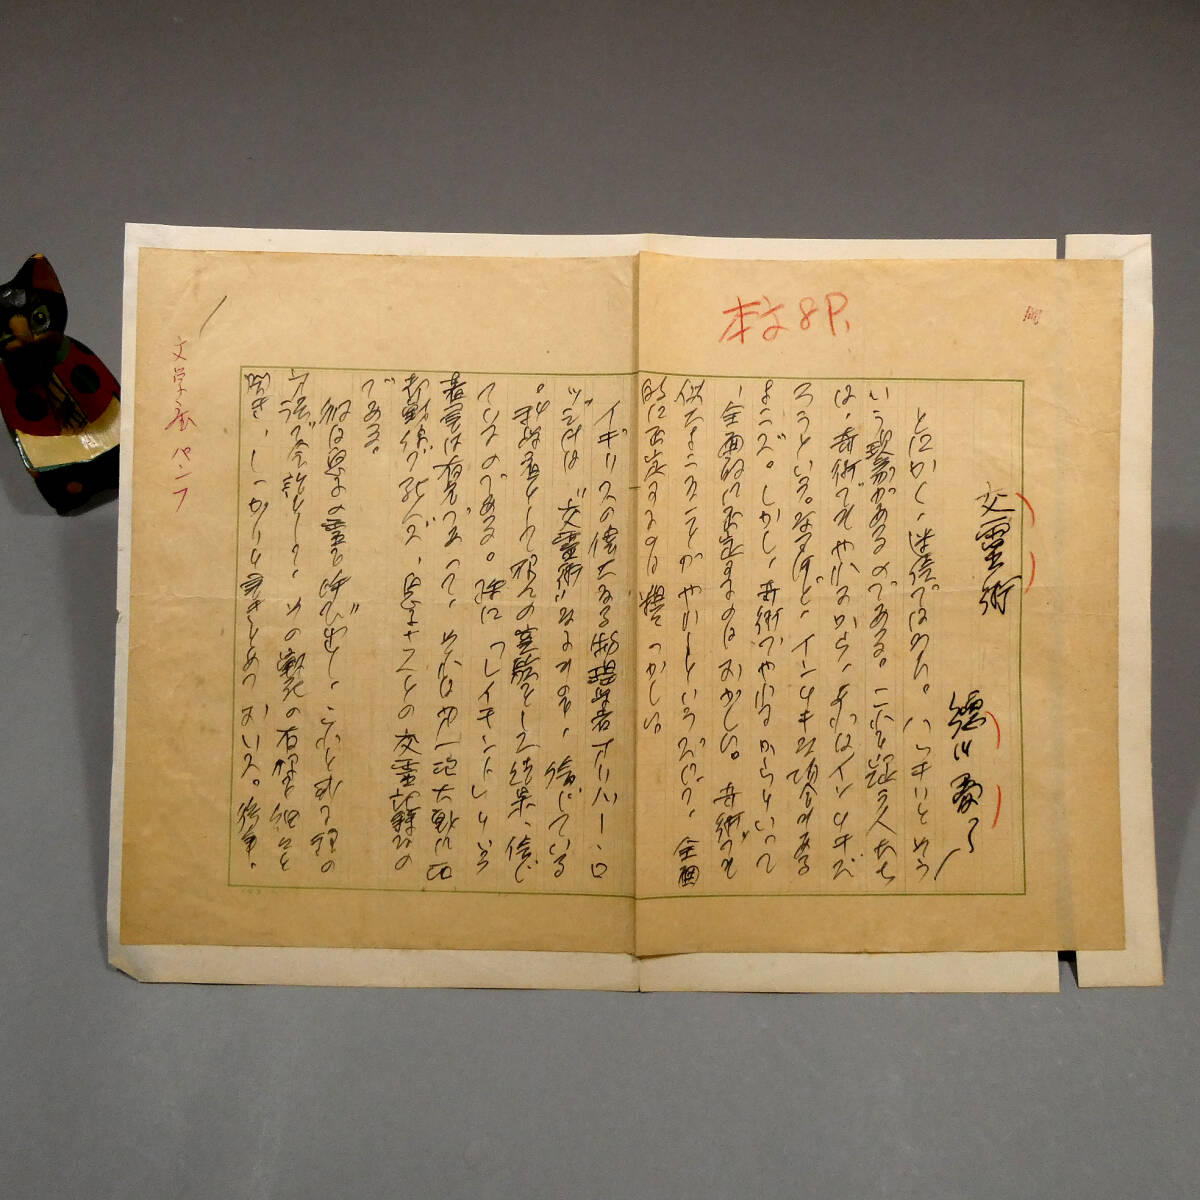 本文8P.
交霊術
徳川夢声
とにかく、迷信ではない。ハッキリとそう
いう現象があるのである。これを疑う人たち
は、奇術でもやれるから、あれはインチキだ
ろうという。なるほど、インチキな場合もある
ようだ。しかし、奇術でやれるからといって
、全面的に否定するのはおかしい。奇術でも
似たようなことがやれるというだけで、全面
的に否定するのは
イギリスの偉大なる物理学者オリバー・ロ
ッジは、交霊術なるものを、信じている
。科学者として数々の実験をした結果、信じ
ているのである。殊に「レイモンド」という
著書は有名であって、これは第一次大戦に
で
である。
彼は息子の霊を呼び出し、
方法で会話をし、その戦死の有様を細々と
聞き、しっかりと書きとめておいた。後年、
文学座 パンフ